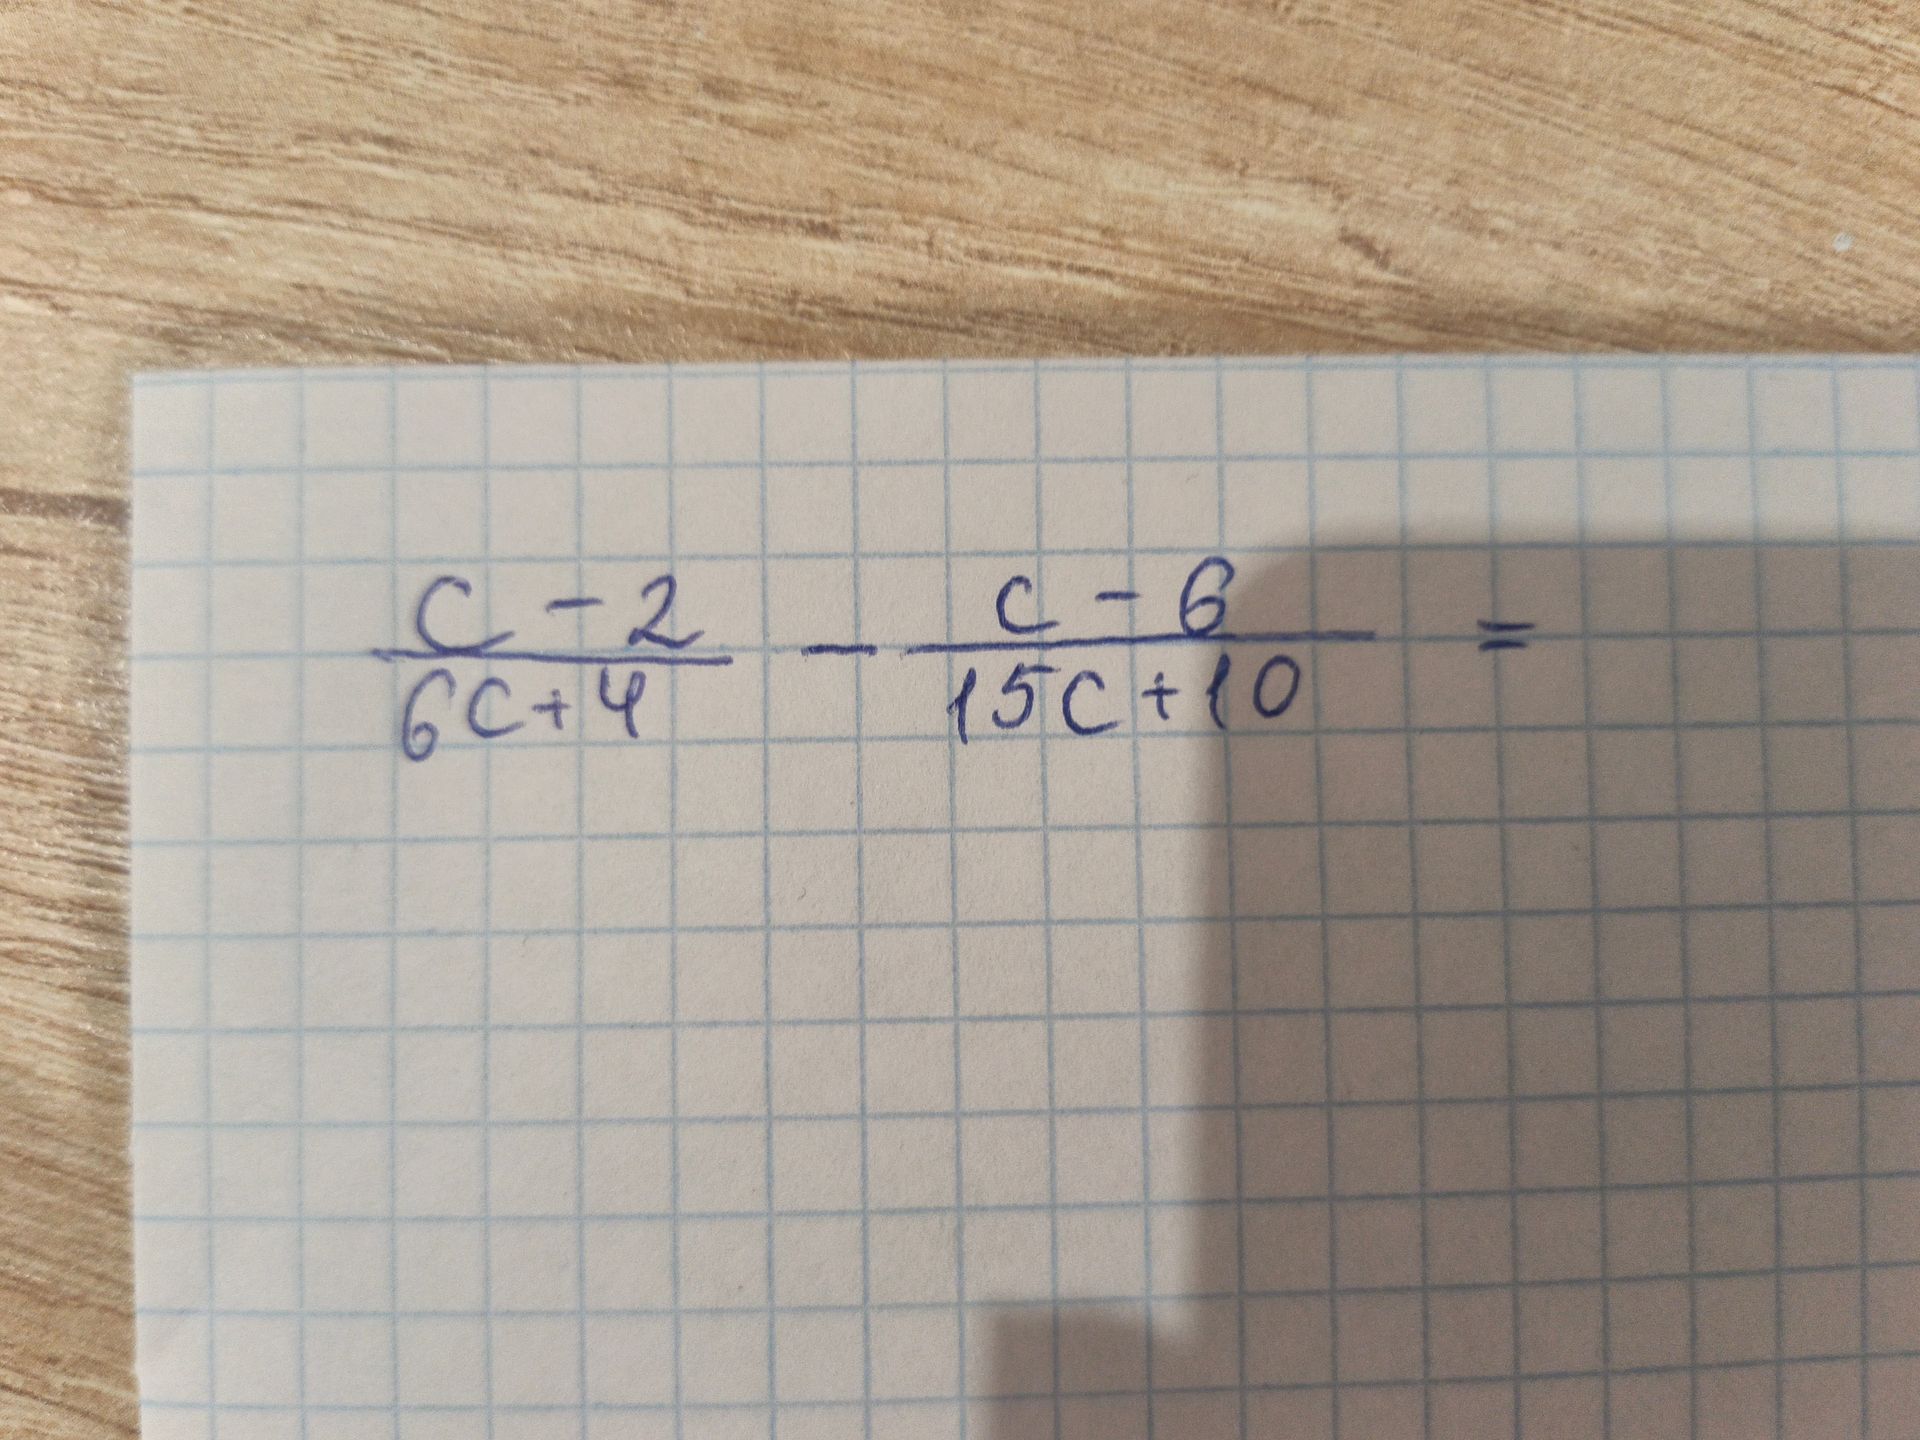 c - 2 / 6c + 4 - c - 6 / 15c + 10 =